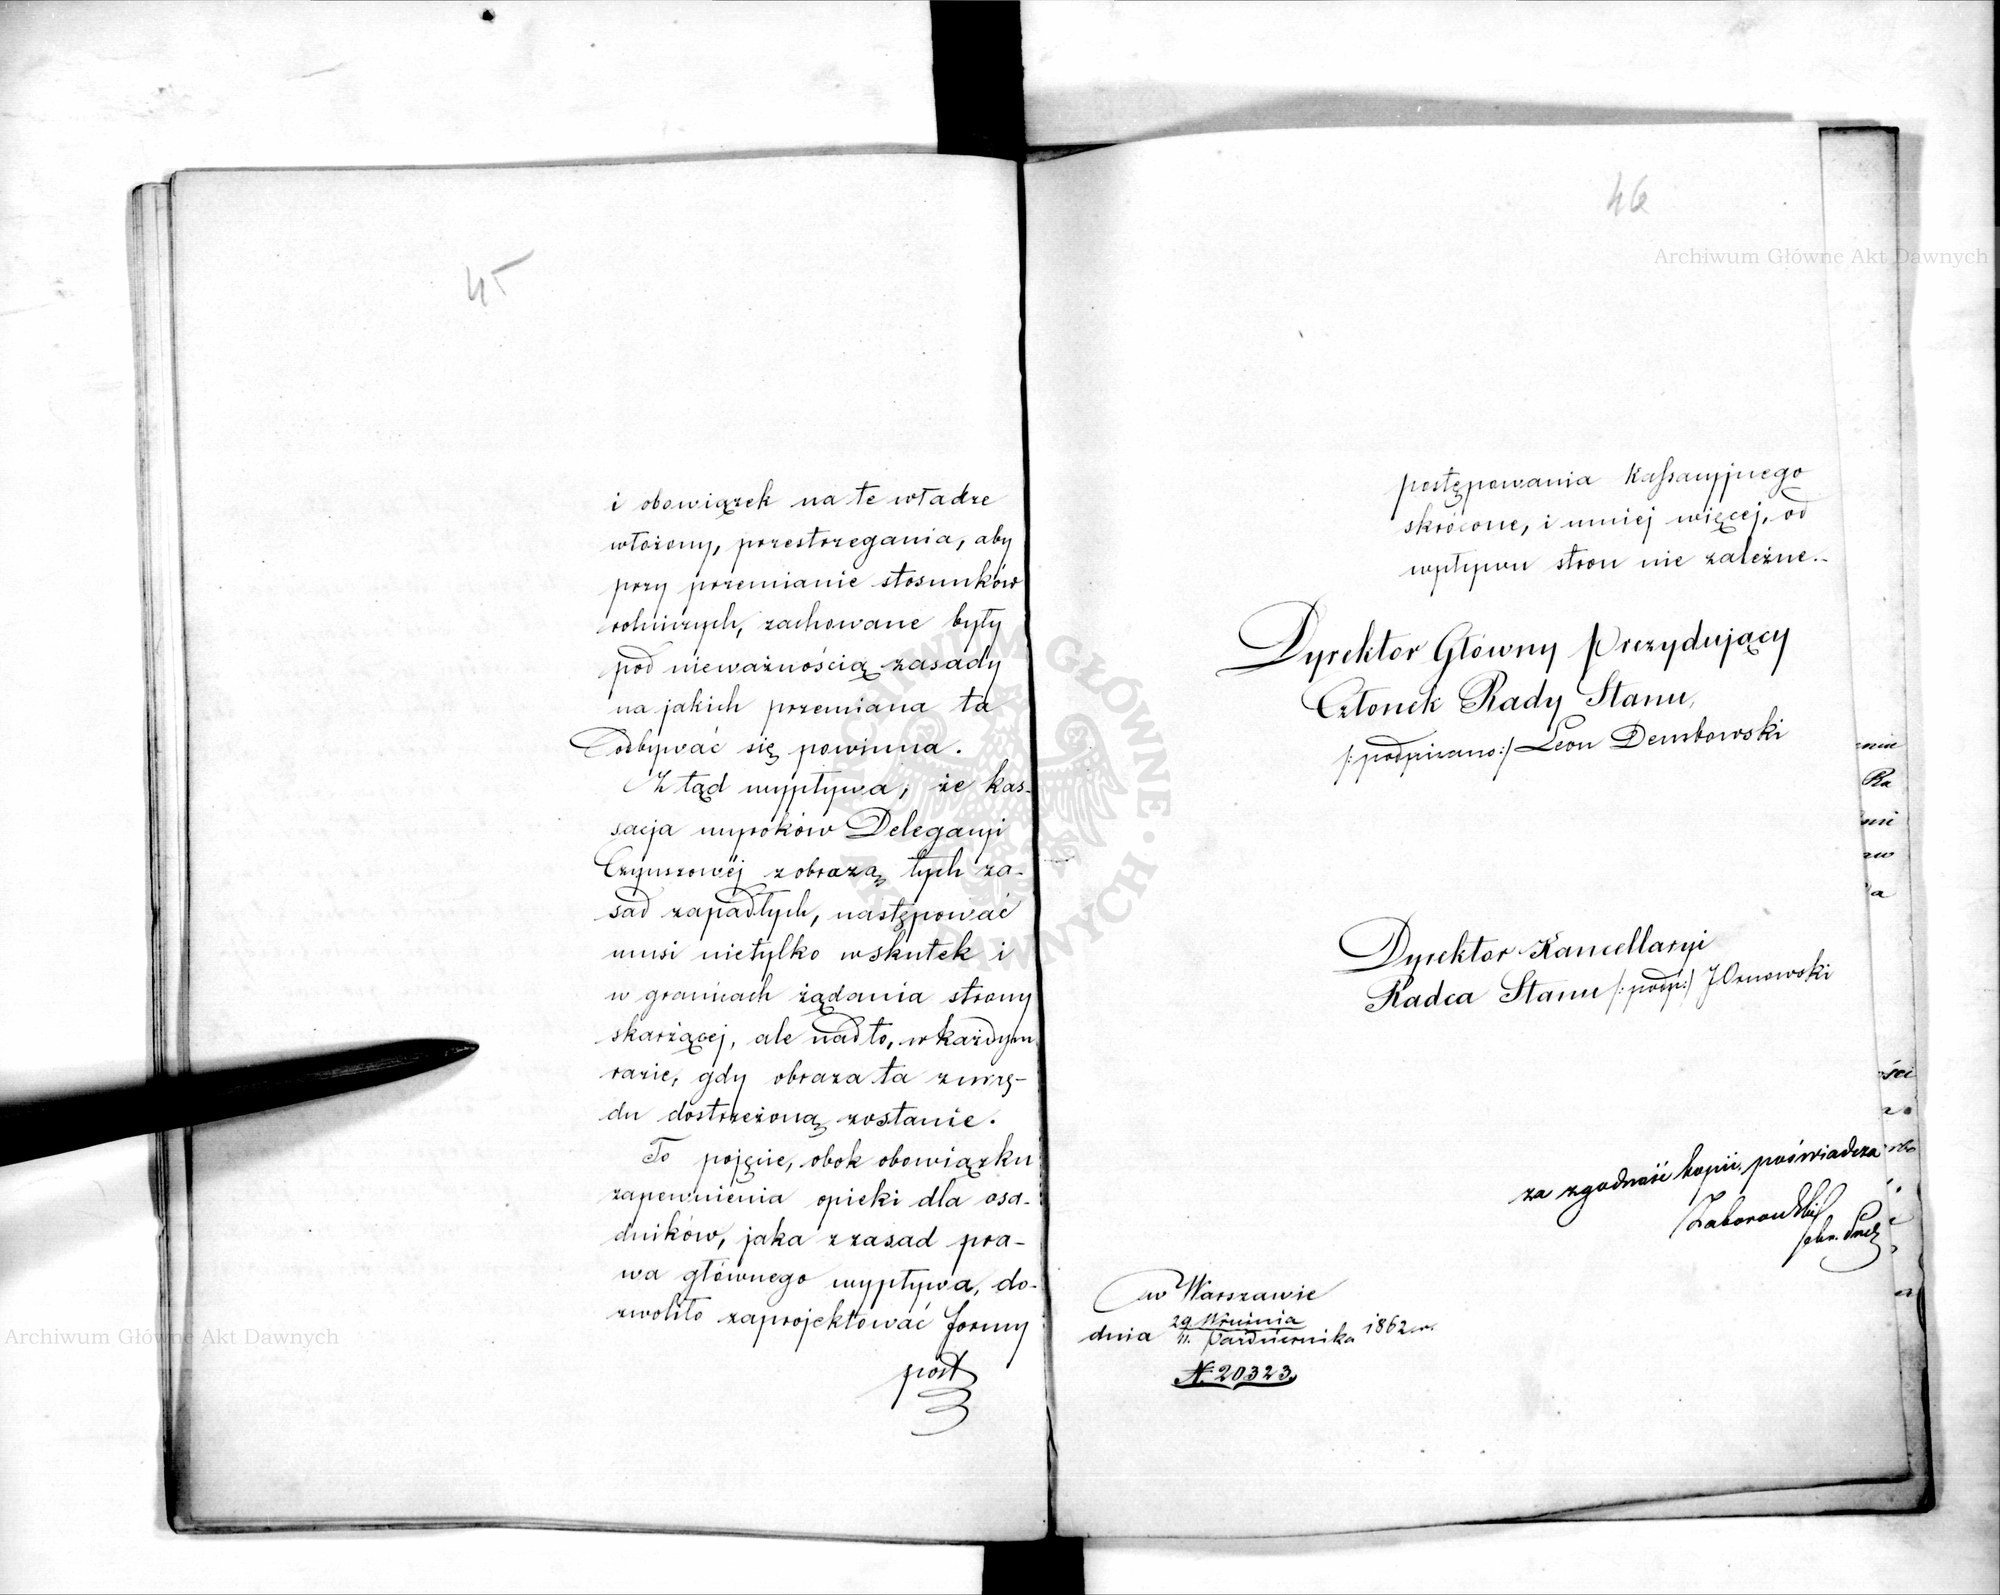 45
i obowiązek na te władze
włożony, przestrzegania, aby
przy przemianie stosunków
rolniczych, zachowane były
pod nieważnością zasady
na jakich przemiana ta
odbywać się powinna.
Z tąd wypływa, że kas-
sacja wyroków Delegacyi
Czynszowéj z obrazą tych za-
sad zapadłych, następować
musi nietylko w skutek i
w granicach żądania strony
skarżącej, ale nad to, w każdym
razie, gdy obraza ta z urzę-
du dostrzeżoną zostanie.
To pojęcie, obok obowiązku
zapewnienia opieki dla osa-
dników, jaka z zasad pra-
wa głównego wypływa, do-
zwoliło zaprojektować formy
post
46
postępowania Kassacyjnego
skrócone, i mniej więcej, od
wpływu stron nie zależne.-
Dyrektor Główny Prezydujący
Członek Rady Stanu,
/:podpisano:/ Leon Dembowski
Dyrektor Kancellaryi
Radca Stanu /:podp:/ J Ornowski
za zgodność kopii, poświadcza
Zaborowski
w Warszawie
dnia 29 Września
11. Października 1862 r.
N. 20323.
Archiwum Główne Akt Dawnych
Archiwum Główne Akt Dawnych
ARCHIWUM GŁÓWNE AKT DAWNYCH